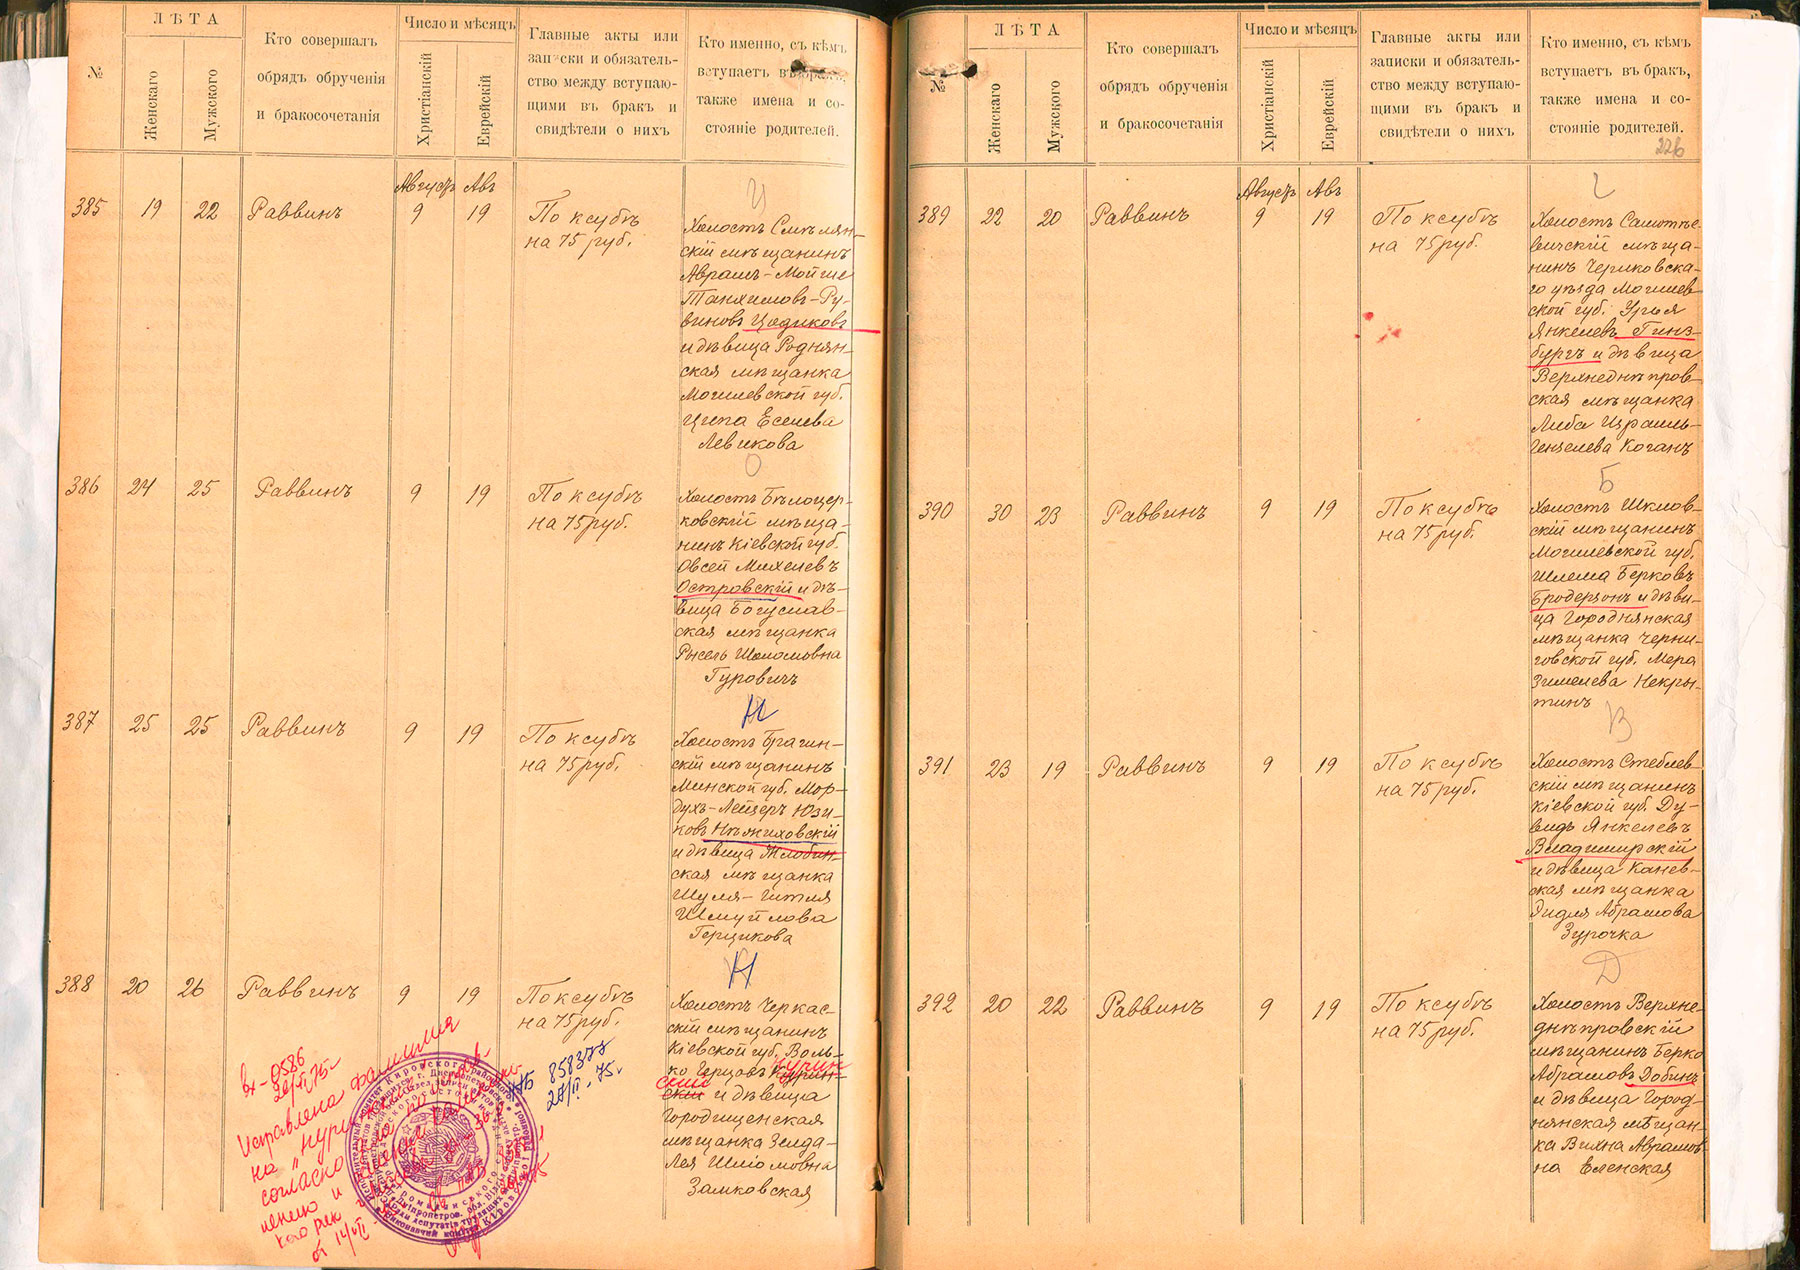 №
ЛѢТА
Женскаго
Мужского
Кто совершалъ
обрядъ обрученія
и бракосочетанія
Число и мѣсяцъ
Христіанскій
Еврейскій
Главные акты или
записки и обязатель-
ство между вступаю-
щими въ бракъ и
свидѣтели о нихъ
Кто именно, съ кѣмъ
вступаетъ въ бракъ,
также имена и со-
стояніе родителей.
Августъ Авъ
385 19 22 Раввинъ 9 19
По ксубѣ
на 75 руб.
Ц
Холостъ Смѣлян-
скій мѣщанинъ
Аврамъ-Мойше
Танхимовъ-Ру-
виновъ Цодиковъ
и дѣвица Роднян-
ская мѣщанка
Могилевской губ.
Ципа Еселева
Левикова
386 24 25 Раввинъ 9 19
По ксубѣ
на 75 руб.
О
Холостъ Бѣлоцер-
ковскій мѣща-
нинъ Кіевской губ.
Овсей Михелевъ
Островскій и дѣ-
вица Богуслав-
ская мѣщанка
Рысель Шоломовна
Гуровичъ
387 25 25 Раввинъ 9 19
По ксубѣ
на 75 руб.
Н
Холостъ Брагин-
скій мѣщанинъ
Минской губ. Мор-
духъ-Лейзеръ Юзи-
ковъ Нѣжиховскій
и дѣвица Жлобин-
ская мѣщанка
Шуля-Гитля
Шмуйлова
Герцикова
388 20 26 Раввинъ 9 19
По ксубѣ
на 75 руб.
Н
Холостъ Черкас-
скій мѣщанинъ
Кіевской губ. Воль-
ко Герцовъ
и дѣвица
Городищенская
мѣщанка Зелда-
Лея Шліомовна
Замковская
Исправлена фамилия
на „Нурин
согласно
858377
№
ЛѢТА
Женскаго
Мужского
Кто совершалъ
обрядъ обрученія
и бракосочетанія
Число и мѣсяцъ
Христіанскій
Еврейскій
Главные акты или
записки и обязатель-
ство между вступаю-
щими въ бракъ и
свидѣтели о нихъ
Кто именно, съ кѣмъ
вступаетъ въ бракъ,
также имена и со-
стояніе родителей.
226
Августъ Авъ
389 22 20 Раввинъ 9 19
По ксубѣ
на 75 руб.
Холостъ Самотѣе-
вичскій мѣща-
нинъ Чериковска-
го уѣзда Могилев
ской губ. Урья
Янкелевъ Гинз-
бургъ и дѣвица
Верхнеднѣпров-
ская мѣщанка
Либа Израиль-
Гензелева Коганъ
390 30 23 Раввинъ 9 19
По ксубѣ
на 75 руб.
Б
Холостъ Шклов-
скій мѣщанинъ
Могилевской губ.
Шлема Берковъ
Бродерзонъ и дѣви-
ца Городнянская
мѣщанка Черни-
говской губ. Мера
Зимелева Некры-
тинъ
391 23 19 Раввинъ 9 19
По ксубѣ
на 75 руб.
В
Холостъ Стеблев-
скій мѣщанинъ
Кіевской губ. Ду-
видъ Янкелевъ
Владимирскій
и дѣвица Канев-
ская мѣщанка
Эидля Абрамова
Зурочка
392 20 22 Раввинъ 9 19
По ксубѣ
на 75 руб.
Д
Холостъ Верхне-
днѣпровскій
мѣщанинъ Берко
Абрамовъ Добинъ
и дѣвица Город-
нянская мѣщан-
ка Вихна Абрамов
на Еленская